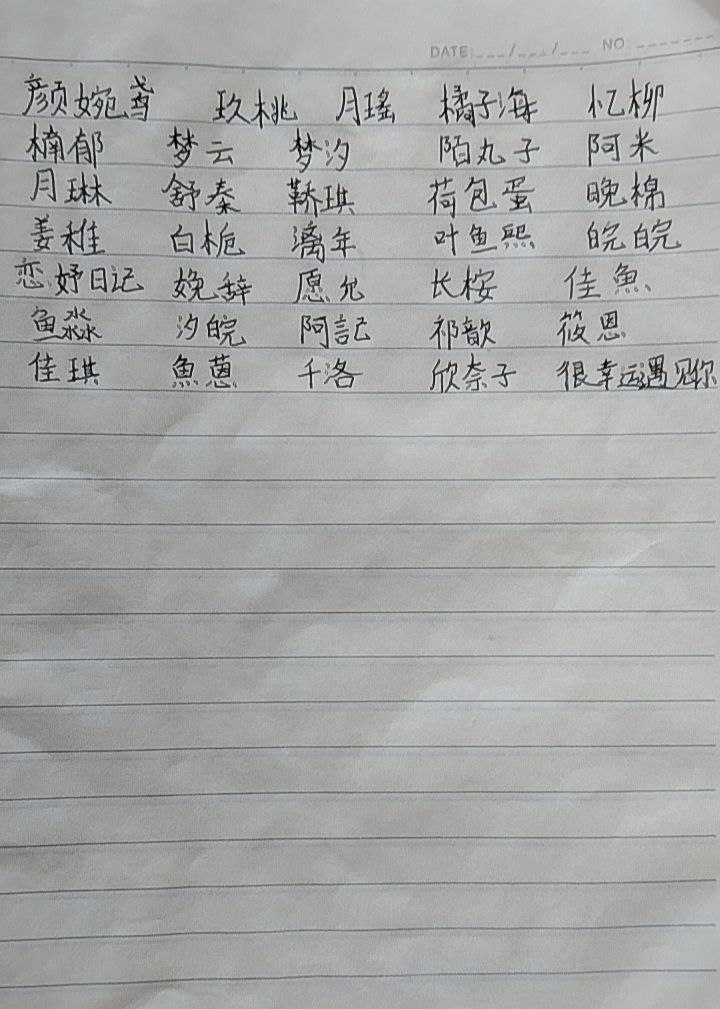 DATE:___/___/___ NO
颜婉鸢 玖桃 月瑤 橘子海 忆柳
楠郁 梦云 梦汐 陌丸子 阿米
月琳 舒秦 鞒琪 荷包蛋 晚棉
姜稚 白栀 漓年 叶鱼熙 皖皖
恋妤日记 娩辞 愿允 长桉 佳魚
鱼淼 汐皖 阿記 祁歆 筱恩
佳琪 魚蒽 千洛 欣奈子 很幸运遇见你